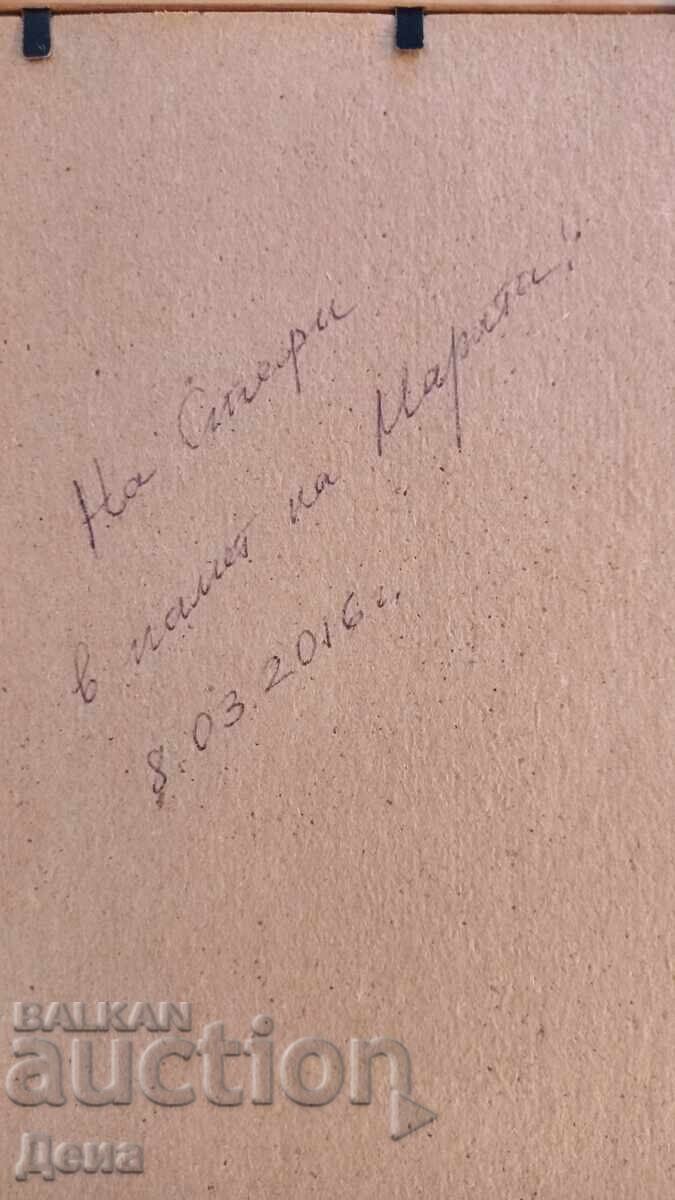 На Стефи
в памет на Марята!
8.03.2016 г.
BALKAN
auction
Деиа